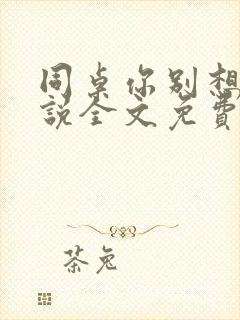 同桌你别想
说全文免費
茶兔